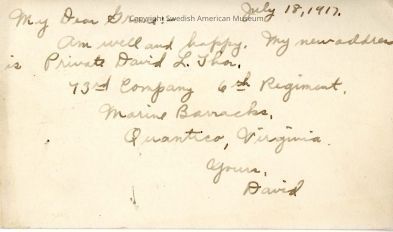 July 18, 1917.
My Dear Grace:
Copyright Swedish American Museum
Am well and happy. My new address
is Private David L. Thor,
73rd Company 6th Regiment,
Marine Barracks,
Quantico, Virginia.
Yours,
David